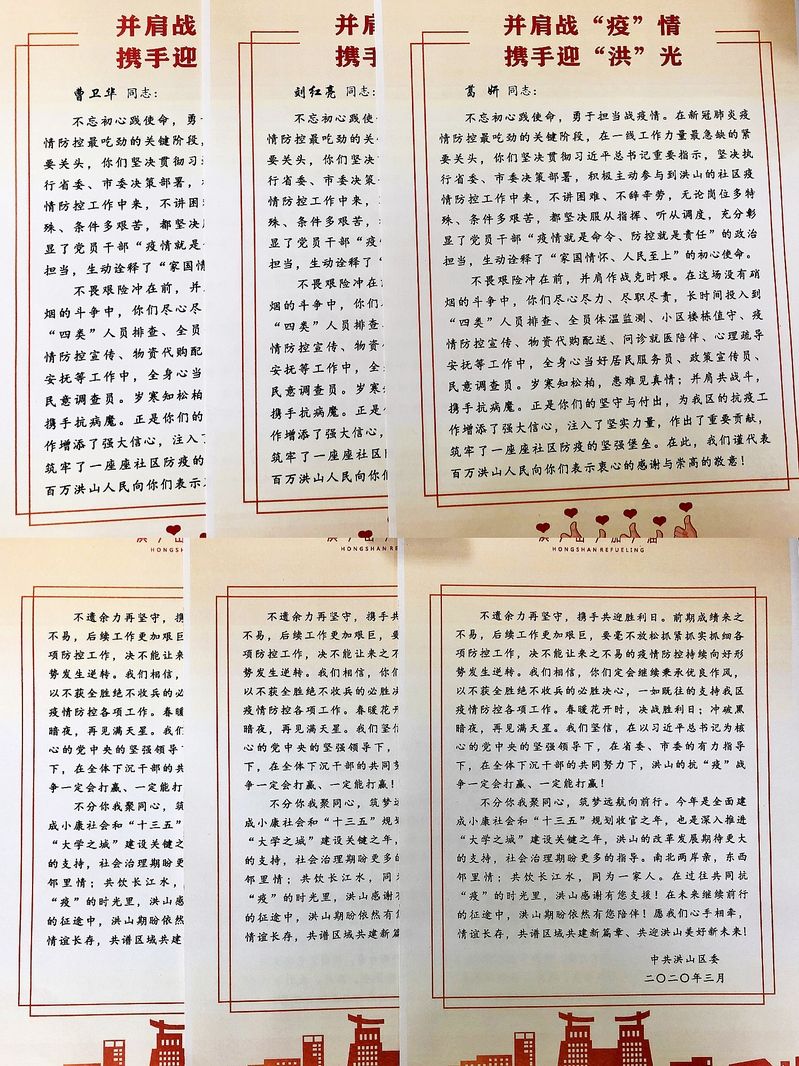 并肩战
携手迎
曹卫华 同志：
不忘初心践使命，勇
情防控最吃劲的关键阶段，
要关头，你们坚决贯彻习
行省委、市委决策部署，
情防控工作中来，不讲困
殊、条件多艰苦，都坚决
显了党员干部“疫情就是
担当，生动诠释了“家国
不畏艰险冲在前，并
烟的斗争中，你们尽心尽
“四类”人员排查、全员
情防控宣传、物资代购配
安抚等工作中，全身心当
民意调查员。岁寒知松柏，
携手抗病魔。正是你们的
作增添了强大信心，注入
筑牢了一座座社区防疫的
百万洪山人民向你们表示
并肩
携手
刘红亮 同志：
不忘初心践使
情防控最吃劲的关
要关头，你们坚决
行省委、市委决策
情防控工作中来，
殊、条件多艰苦，
显了党员干部“疫
担当，生动诠释了
不畏艰险冲在
烟的斗争中，你们
“四类”人员排查
情防控宣传、物资
安抚等工作中，全
民意调查员。岁寒
携手抗病魔。正是
作增添了强大信心
筑牢了一座座社区
百万洪山人民向你
并肩战“疫”情
携手迎“洪”光
葛妍 同志：
不忘初心践使命，勇于担当战疫情。在新冠肺炎疫
情防控最吃劲的关键阶段，在一线工作力量最急缺的紧
要关头，你们坚决贯彻习近平总书记重要指示，坚决执
行省委、市委决策部署，积极主动参与到洪山的社区疫
情防控工作中来，不讲困难、不辞辛劳，无论岗位多特
殊、条件多艰苦，都坚决服从指挥、听从调度，充分彰
显了党员干部“疫情就是命令、防控就是责任”的政治
担当，生动诠释了“家国情怀、人民至上”的初心使命。
不畏艰险冲在前，并肩作战克时艰。在这场没有硝
烟的斗争中，你们尽心尽力、尽职尽责，长时间投入到
“四类”人员排查、全员体温监测、小区楼栋值守、疫
情防控宣传、物资代购配送、问诊就医陪伴、心理疏导
安抚等工作中，全身心当好居民服务员、政策宣传员、
民意调查员。岁寒知松柏，患难见真情；并肩共战斗，
携手抗病魔。正是你们的坚守与付出，为我区的抗疫工
作增添了强大信心，注入了坚实力量，作出了重要贡献，
筑牢了一座座社区防疫的坚强堡垒。在此，我们谨代表
百万洪山人民向你们表示衷心的感谢与崇高的敬意！
HONGSHAN
不遗余力再坚守，携
不易，后续工作更加艰巨
项防控工作，决不能让来
势发生逆转。我们相信，
以不获全胜绝不收兵的必
疫情防控各项工作。春暖
暗夜，再见满天星。我们
心的党中央的坚强领导
下，在全体下沉干部的共
争一定会打赢、一定能打
不分你我聚同心，筑
成小康社会和“十三五”
“大学之城”建设关键之
的支持，社会治理期盼更
邻里情；共饮长江水，
“疫”的时光里，洪山感
的征途中，洪山期盼依然
情谊长存，共谱区域共建
HONGSHAN REFUELING
不遗余力再坚守，携手共
不易，后续工作更加艰巨，要
项防控工作，决不能让来之不
势发生逆转。我们相信，你们
以不获全胜绝不收兵的必胜决
疫情防控各项工作。春暖花开
暗夜，再见满天星。我们坚信
心的党中央的坚强领导下，
下，在全体下沉干部的共同努
争一定会打赢、一定能打赢！
不分你我聚同心，筑梦远
成小康社会和“十三五”规划
“大学之城”建设关键之年，
的支持，社会治理期盼更多的
邻里情；共饮长江水，同为
“疫”的时光里，洪山感谢有
的征途中，洪山期盼依然有您
情谊长存，共谱区域共建新篇
HONGSHAN REFUELING
不遗余力再坚守，携手共迎胜利日。前期成绩来之
不易，后续工作更加艰巨，要毫不放松抓紧抓实抓细各
项防控工作，决不能让来之不易的疫情防控持续向好形
势发生逆转。我们相信，你们定会继续秉承优良作风，
以不获全胜绝不收兵的必胜决心，一如既往的支持我区
疫情防控各项工作。春暖花开时，决战胜利日；冲破黑
暗夜，再见满天星。我们坚信，在以习近平总书记为核
心的党中央的坚强领导下，在省委、市委的有力指导
下，在全体下沉干部的共同努力下，洪山的抗“疫”战
争一定会打赢、一定能打赢！
不分你我聚同心，筑梦远航向前行。今年是全面建
成小康社会和“十三五”规划收官之年，也是深入推进
“大学之城”建设关键之年，洪山的改革发展期待更大
的支持，社会治理期盼更多的指导。南北两岸亲，东西
邻里情；共饮长江水，同为一家人。在过往共同抗
“疫”的时光里，洪山感谢有您支援！在未来继续前行
的征途中，洪山期盼依然有您陪伴！愿我们心手相牵，
情谊长存，共谱区域共建新篇章、共迎洪山美好新未来！
中共洪山区委
二〇二〇年三月